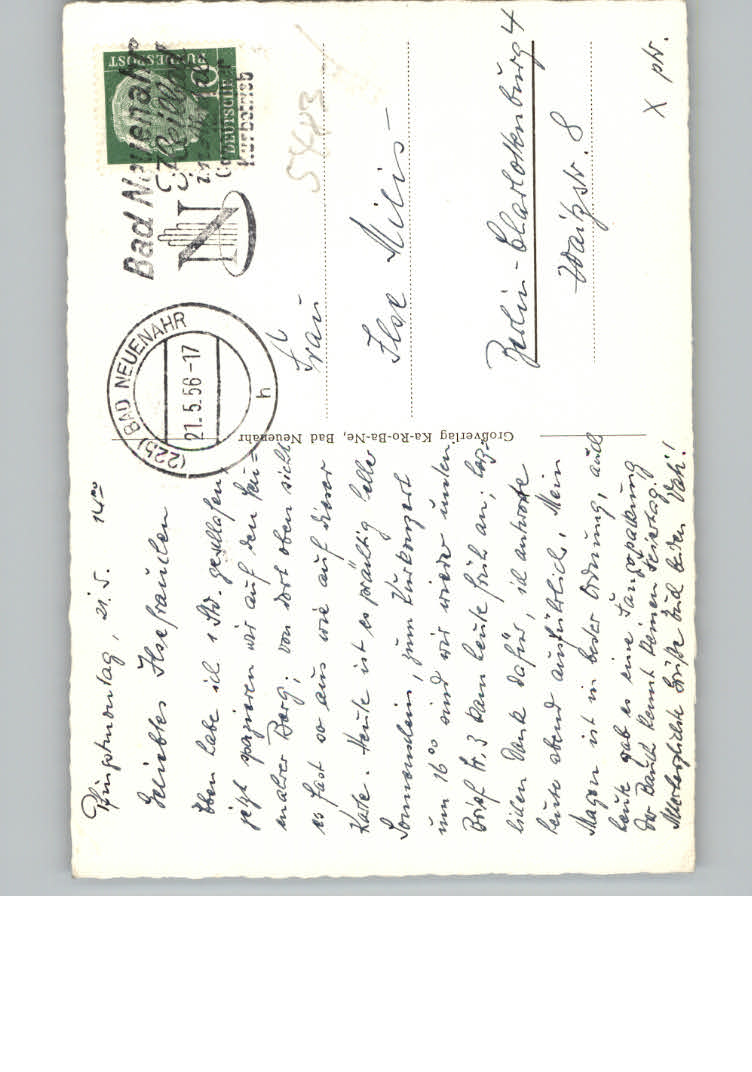 Pfingstmontag, 21.5. 14⁰⁰
Geliebtes Ilsefrauchen
Eben habe ich 1 Std. geschlafen,
jetzt spazieren wir auf den Neu=
enahrer Berg; von dort oben sieht
es fast so aus wie auf dieser
Karte. Heute ist es prächtig heller
Sonnenschein, zum Kurkonzert
um 16⁰⁰ sind wir wieder unten.
Brief Nr. 3 kam heute früh an, herz=
lichen Dank dafür, ich antworte
heute abend ausführlich. Mein
Magen ist in bester Ordnung, auch
heute gab es eine Fangopackung
der Bauch kennt keinen Feiertag!
Allerherzlichste Grüße Euch beiden Vati!
Großverlag Ka-Ro-Ba-Ne, Bad Neuenahr
(22b) BAD NEUENAHR
21.5.56-17
h
Bad Neuenahr
Kurbetrieb
DEUTSCHE
BUNDESPOST
10
5483
Frau
Ilse Milis-
Berlin-Charlottenburg 4
Waitzstr. 8
X ptr.